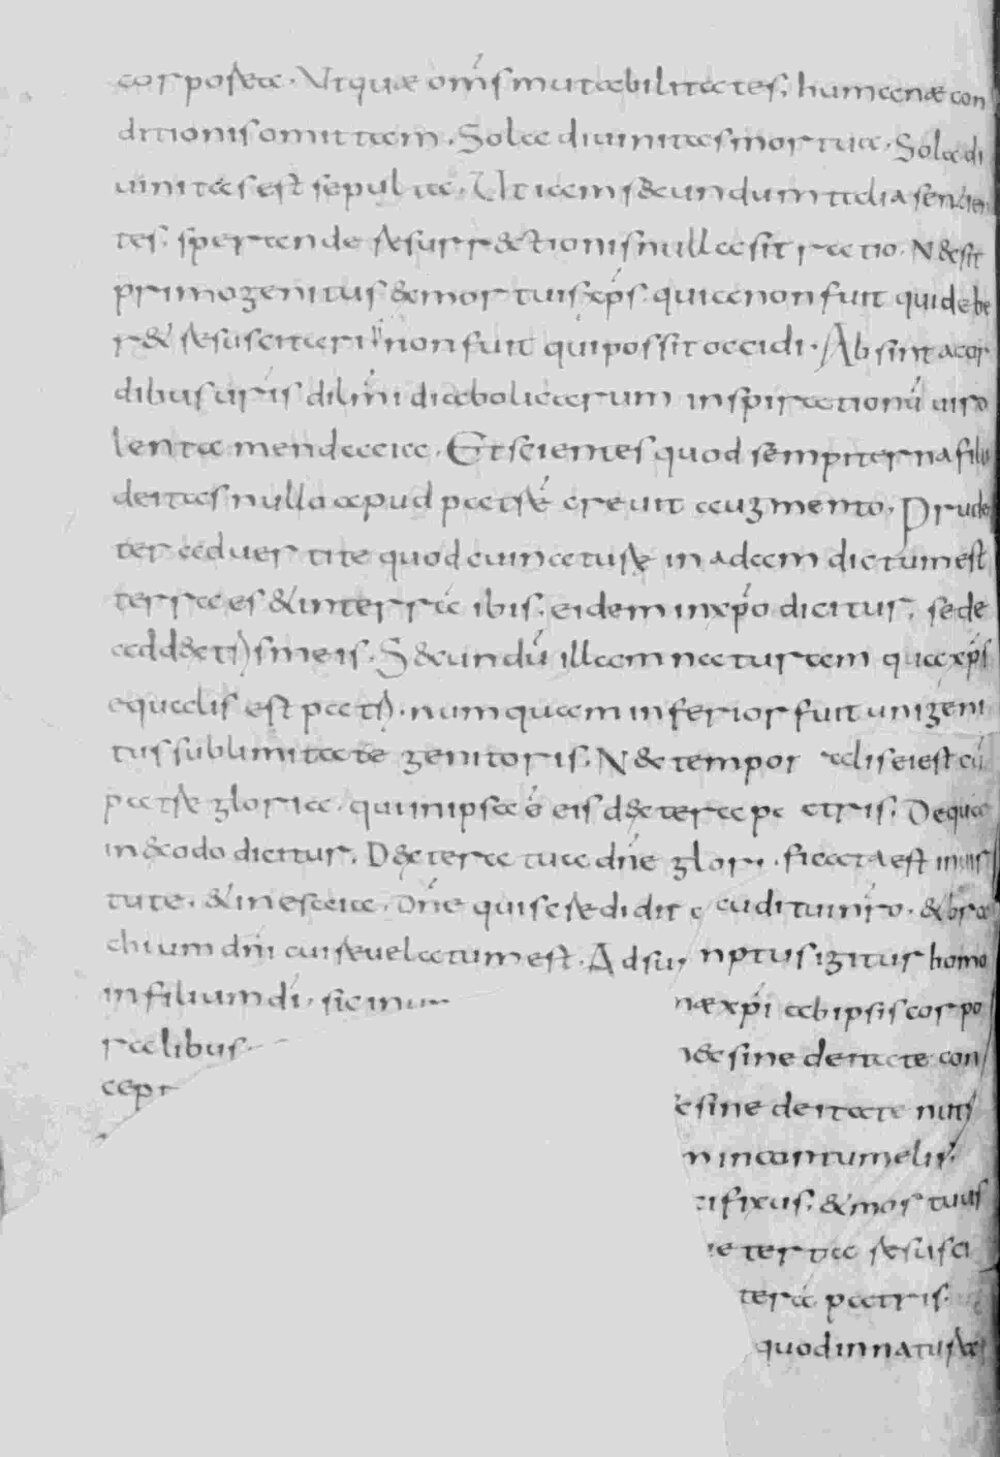 corporea. Ut quae om̅s mutabilitates; humanae con
ditionis omittam. Sola diuinitas mortua. Sola di
uinitas est sepulta. Ut iam s&cundum talia sentien
tes; sperande resurr&ctionis nulla sit ratio. N& sit
primogenitus & mortuis xp̅s. quia non fuit qui debe
r& resuscitari non fuit qui possit occidi. Absint a cor
dibus ur̅is dil̅mi diabolicarum inspirationu̅ uiro
lenta mendacia. Et scientes quod sempiterna filii
deitas nullo apud patre̅ creuit augmento. Prude
ter aduertite quod cui nature in adam dictum est
terra es & in terra̅ ibis; eidem in xp̅o dicitur; sede
ad d&tr̅ismeis. S&cundu̅ illam naturam qua xp̅s
equalis est patri. numquam inferior fuit unigeni
tus sublimitate genitoris; N& tempor alis ei est cu̅
patre gloria. qui in ipsa e̅ eis d&tera pa atris; De qua
in &odo dicitur; D&tera tua dn̅e glori . ficata est in uir
tute. & in esaia. Dn̅e quis credidit auditui nr̅o. & bra
chium dn̅i cui reuelatum est. Adsu mptus igitur homo
in filium di̅. sic in un nae xp̅i ab ipsis corpo
ralibus & sine deitate con
cept sine deitate nutri
n in contumeliis;
cifixus; & mortuus
tertia resusci
tera̅ patris.
quod in natura